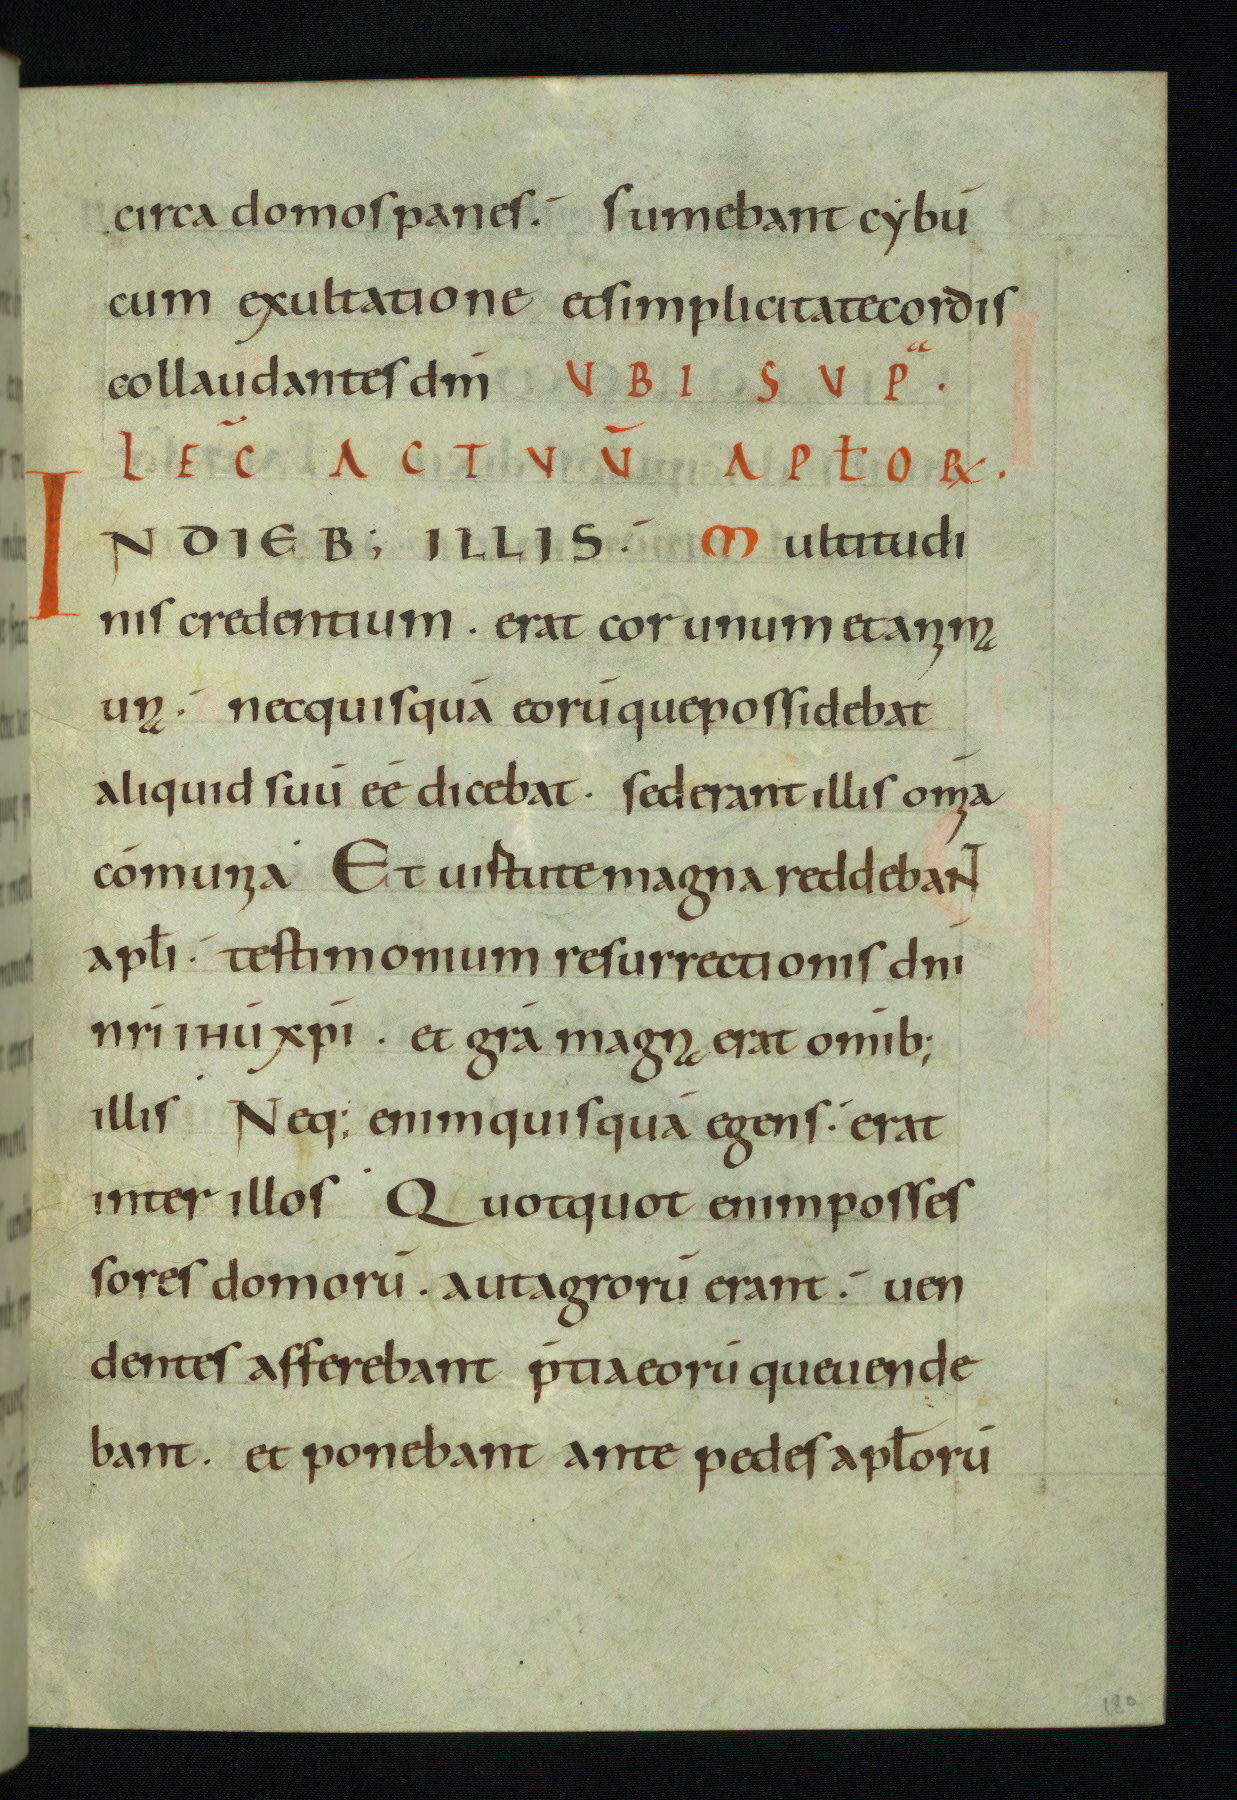 circa domos panes. sumebant cybū
cum exultatione et simplicitate cordis
collaudantes dm̄ UBI SUPᵃ.
LEC̄ ACTUŪ APŁOꝜ.
IN DIEB; ILLIS. Multitudi
nis credentium. erat cor unum et anima
una. nec quisquā eorū que possidebat
aliquid suū eē dicebat. sed erant illis om̄ia
cōmunia Et uirtute magna reddebaNT
apłi. testimonium resurrectionis dn̄i
nr̄i ihū xp̄i. et gr̄a magna erat om̄ib;
illis Neq; enim quisquā egens. erat
inter illos Quotquot enim posses
sores domorū. aut agrorū erant. uen
dentes afferebant p̄tia eorū que uende
bant. et ponebant ante pedes apłorū
180